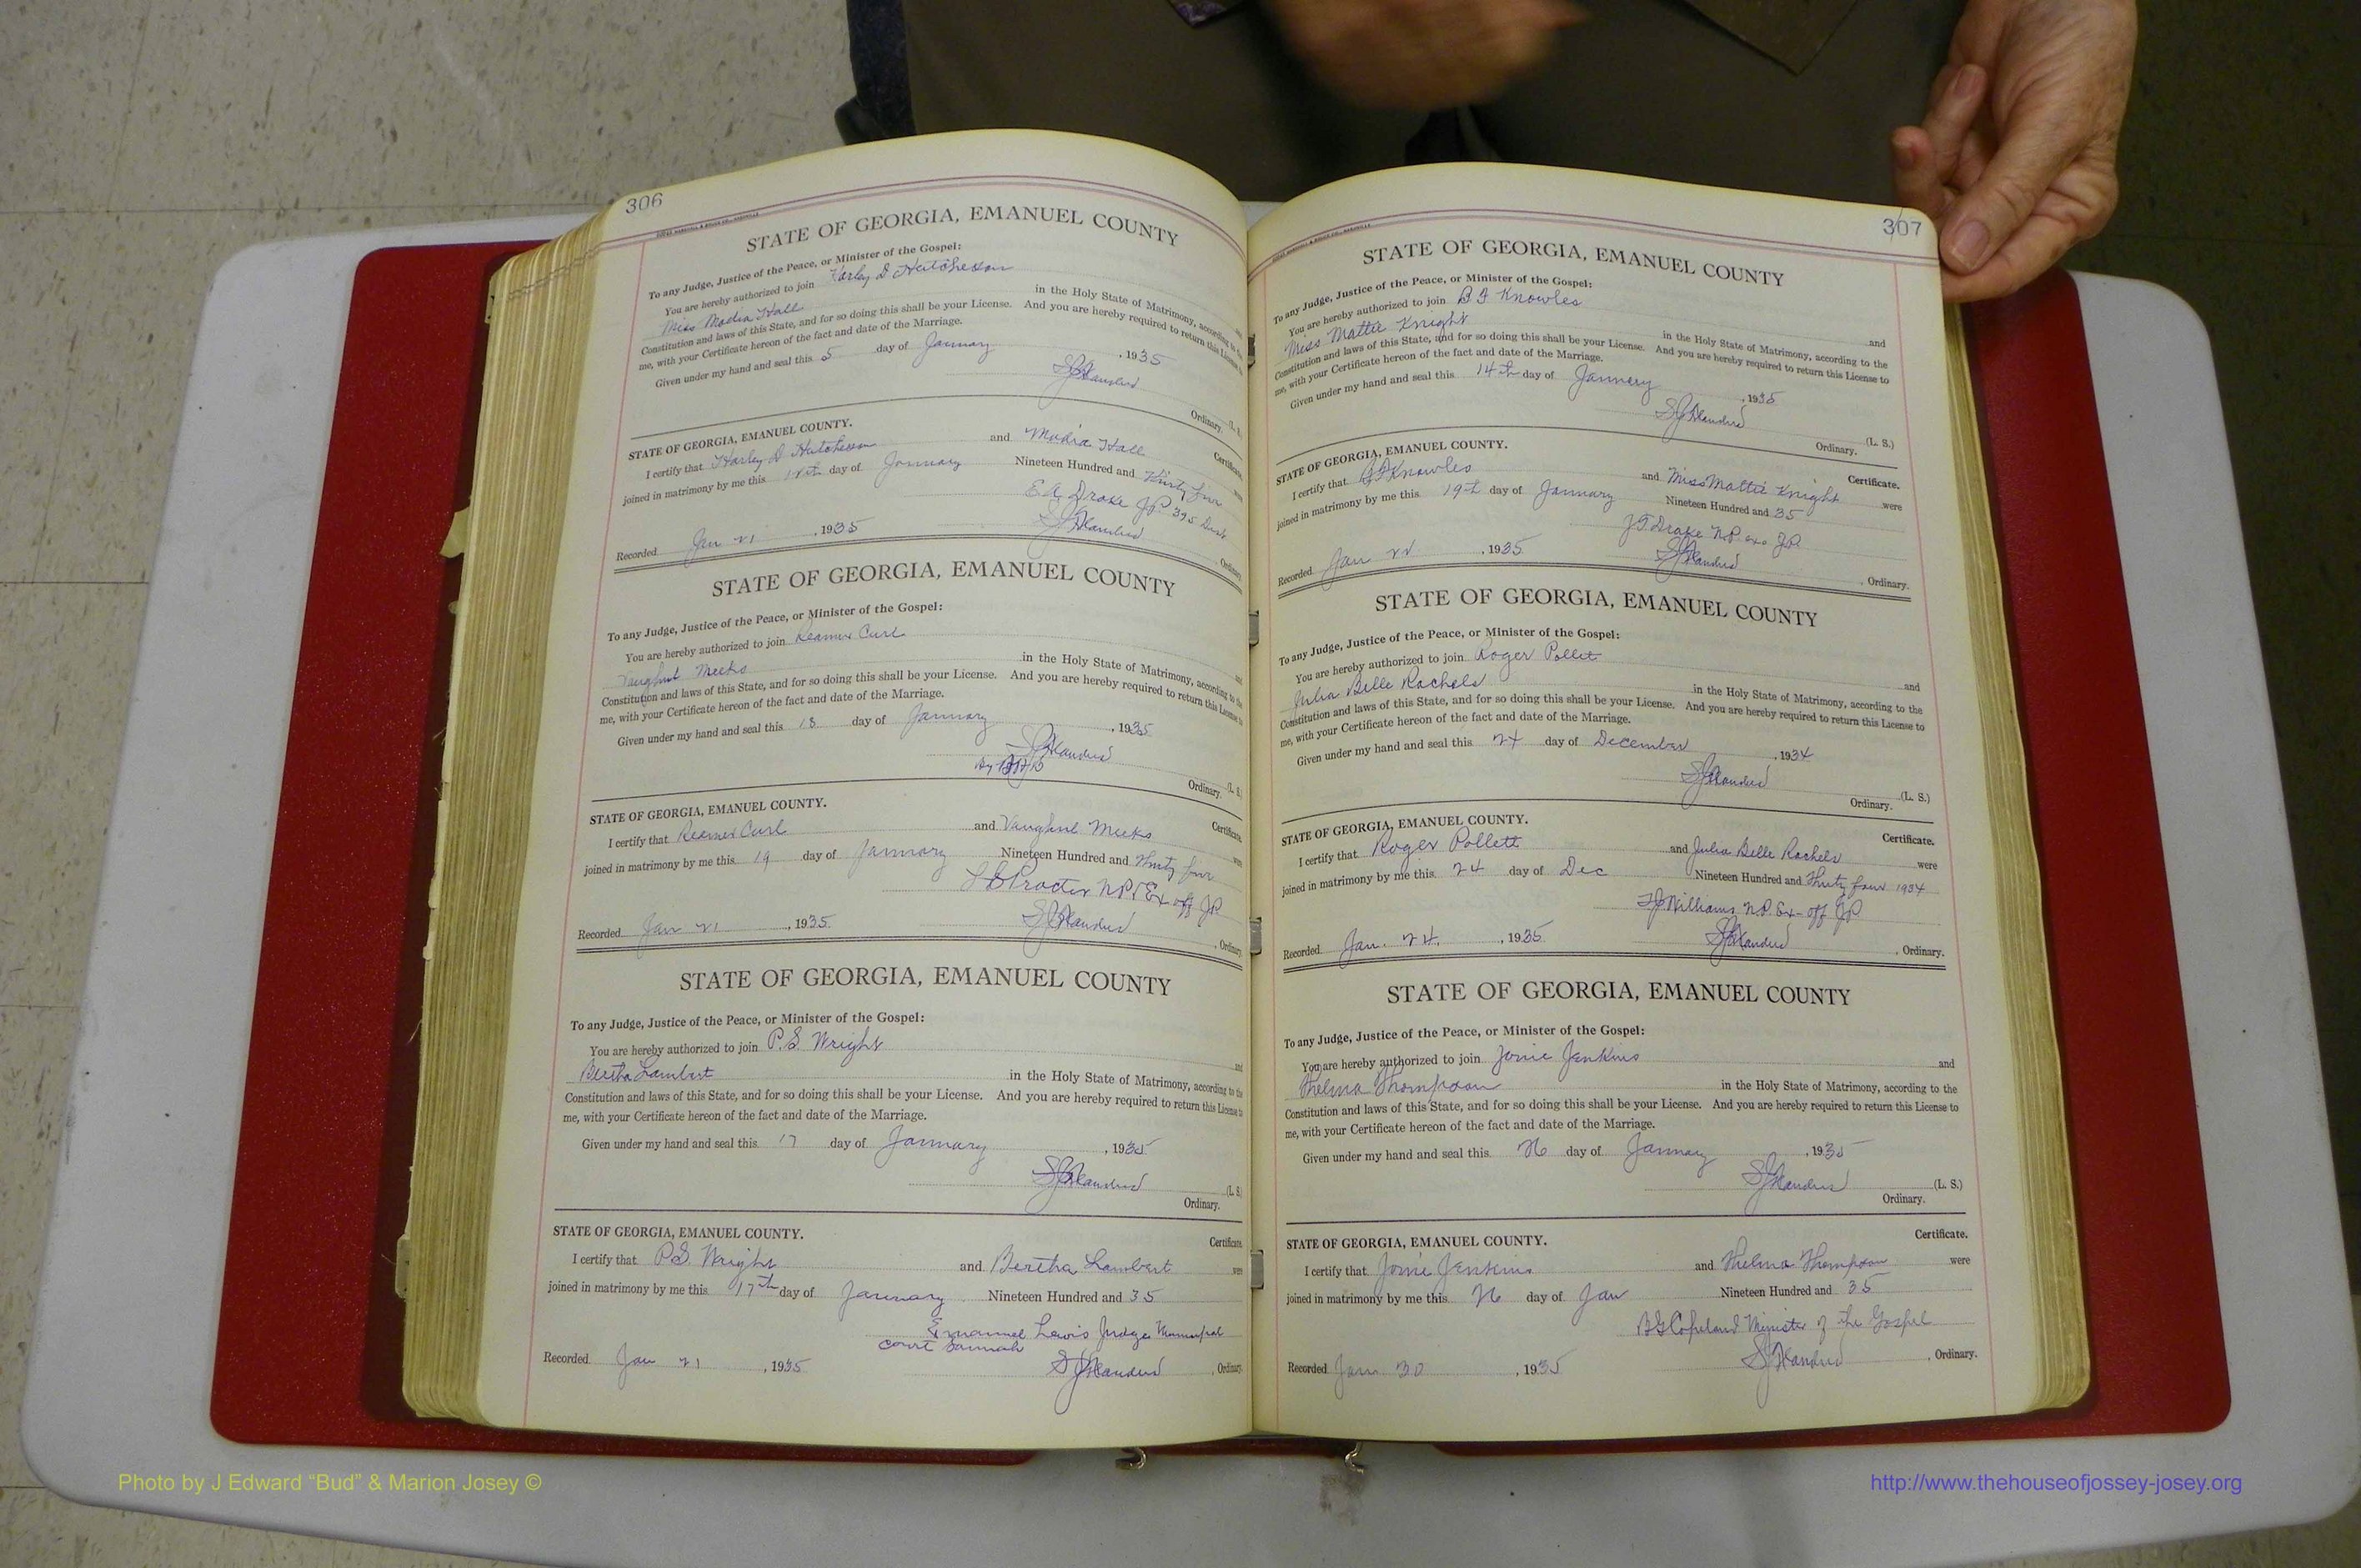 306
STATE OF GEORGIA, EMANUEL COUNTY
To any Judge, Justice of the Peace, or Minister of the Gospel:
You are hereby authorized to join Harley D Hutcheson and
Miss Modia Hall in the Holy State of Matrimony, according to the
Constitution and laws of this State, and for so doing this shall be your License. And you are hereby required to return this License to
me, with your Certificate hereon of the fact and date of the Marriage.
Given under my hand and seal this 5 day of January, 1935
(L. S.)
Ordinary.
STATE OF GEORGIA, EMANUEL COUNTY. Certificate.
I certify that Harley D Hutcheson and Modia Hall were
joined in matrimony by me this day of January Nineteen Hundred and Thirty four
E A Drake JP 395 Dist
Recorded Jan 21, 1935 Ordinary.
STATE OF GEORGIA, EMANUEL COUNTY
To any Judge, Justice of the Peace, or Minister of the Gospel:
You are hereby authorized to join Reamer Curl and
Vaughnt Meeks in the Holy State of Matrimony, according to the
Constitution and laws of this State, and for so doing this shall be your License. And you are hereby required to return this License to
me, with your Certificate hereon of the fact and date of the Marriage.
Given under my hand and seal this 18 day of January, 1935
By
(L. S.)
Ordinary.
STATE OF GEORGIA, EMANUEL COUNTY. Certificate.
I certify that Reamer Curl and Meeks were
joined in matrimony by me this 19 day of January Nineteen Hundred and Thirty four
Proctor NP & Ex off JP
Recorded Jan 21, 1935 , Ordinary.
STATE OF GEORGIA, EMANUEL COUNTY
To any Judge, Justice of the Peace, or Minister of the Gospel:
You are hereby authorized to join P.S. Wright and
Bertha Lambert in the Holy State of Matrimony, according to the
Constitution and laws of this State, and for so doing this shall be your License. And you are hereby required to return this License to
me, with your Certificate hereon of the fact and date of the Marriage.
Given under my hand and seal this 17 day of January, 1935
(L. S.)
Ordinary.
STATE OF GEORGIA, EMANUEL COUNTY. Certificate.
I certify that P.S. Wright and Bertha Lambert were
joined in matrimony by me this 17th day of January Nineteen Hundred and 35
Emanuel Lewis Judge Municipal
court
Recorded Jan 21, 1935 , Ordinary.
307
STATE OF GEORGIA, EMANUEL COUNTY
To any Judge, Justice of the Peace, or Minister of the Gospel:
You are hereby authorized to join B F Knowles and
Miss Mattie Knight in the Holy State of Matrimony, according to the
Constitution and laws of this State, and for so doing this shall be your License. And you are hereby required to return this License to
me, with your Certificate hereon of the fact and date of the Marriage.
Given under my hand and seal this 14th day of January, 1935
(L. S.)
Ordinary.
STATE OF GEORGIA, EMANUEL COUNTY. Certificate.
I certify that B F Knowles and Miss Mattie Knight were
joined in matrimony by me this 19th day of January Nineteen Hundred and 35
Drake NP exo JP
Recorded Jan 22, 1935 , Ordinary.
STATE OF GEORGIA, EMANUEL COUNTY
To any Judge, Justice of the Peace, or Minister of the Gospel:
You are hereby authorized to join Roger Pollett and
Julia Belle Rachels in the Holy State of Matrimony, according to the
Constitution and laws of this State, and for so doing this shall be your License. And you are hereby required to return this License to
me, with your Certificate hereon of the fact and date of the Marriage.
Given under my hand and seal this 24 day of December, 1934
(L. S.)
Ordinary.
STATE OF GEORGIA, EMANUEL COUNTY. Certificate.
I certify that Roger Pollett and Julia Belle Rachels were
joined in matrimony by me this 24 day of Dec Nineteen Hundred and Thirty four 1934
Williams N.P. Ex-off JP
Recorded Jan. 24, 1935 , Ordinary.
STATE OF GEORGIA, EMANUEL COUNTY
To any Judge, Justice of the Peace, or Minister of the Gospel:
You are hereby authorized to join Jonie Jenkins and
Thelma Thompson in the Holy State of Matrimony, according to the
Constitution and laws of this State, and for so doing this shall be your License. And you are hereby required to return this License to
me, with your Certificate hereon of the fact and date of the Marriage.
Given under my hand and seal this 26 day of January, 1935
(L. S.)
Ordinary.
STATE OF GEORGIA, EMANUEL COUNTY. Certificate.
I certify that Jonie Jenkins and Thelma Thompson were
joined in matrimony by me this 26 day of Jan Nineteen Hundred and 35
Copeland Minister of the Gospel
Recorded Jan. 30, 1935 , Ordinary.
Photo by J Edward “Bud” & Marion Josey ©
http://www.thehouseofjossey-josey.org